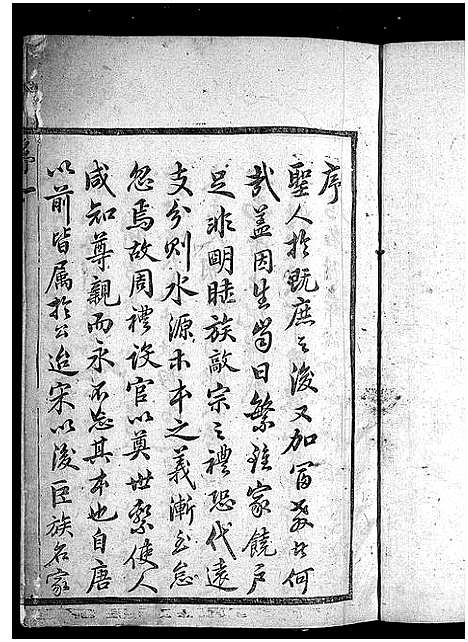 序
聖人於既庶之後又加富教者何
哉蓋因生歯日繁雖家饒户
足非明睦族敬宗之禮恐代遠
支分則水源木本之義漸至怠
忽焉故周禮設官以奠世繫使人
咸知尊親而永不忘其本也自唐
以前皆属於公迨宋以後臣族名家
序一